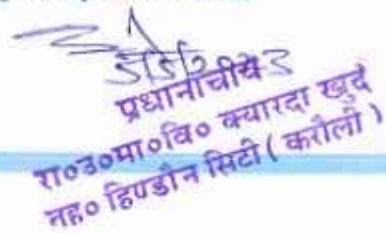 5/5/2023
प्रधानाचार्य
रा०उ०मा०वि० क्यारदा खुर्द
तह० हिण्डौन सिटी ( करौली )